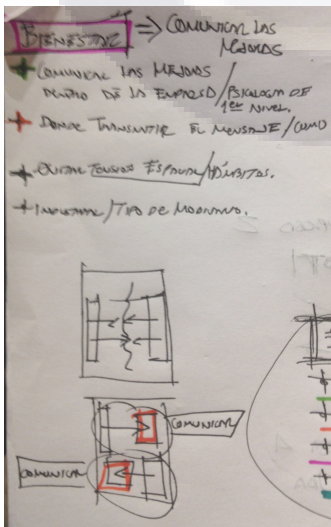 BIENESTAR => COMUNICAR LAS
MEJORAS
+ COMUNICAR LAS MEJORAS
DENTRO DE LA EMPRESA/PSICOLOGIA DE
1er NIVEL.
+ DONDE TRANSMITIR EL MENSAJE/COMO
+ QUITAR TENSION ESPACIAL/HÁBITOS.
+ INDUSTRIAL/TIPO DE
COMUNICAR
COMUNICAR